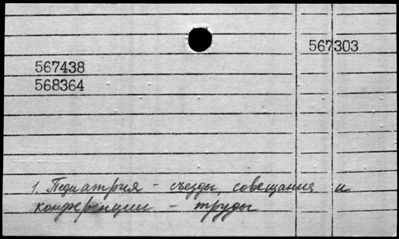 567303
567438
568364
1. Педиатрия - съезды, совещания и
конференции - труды